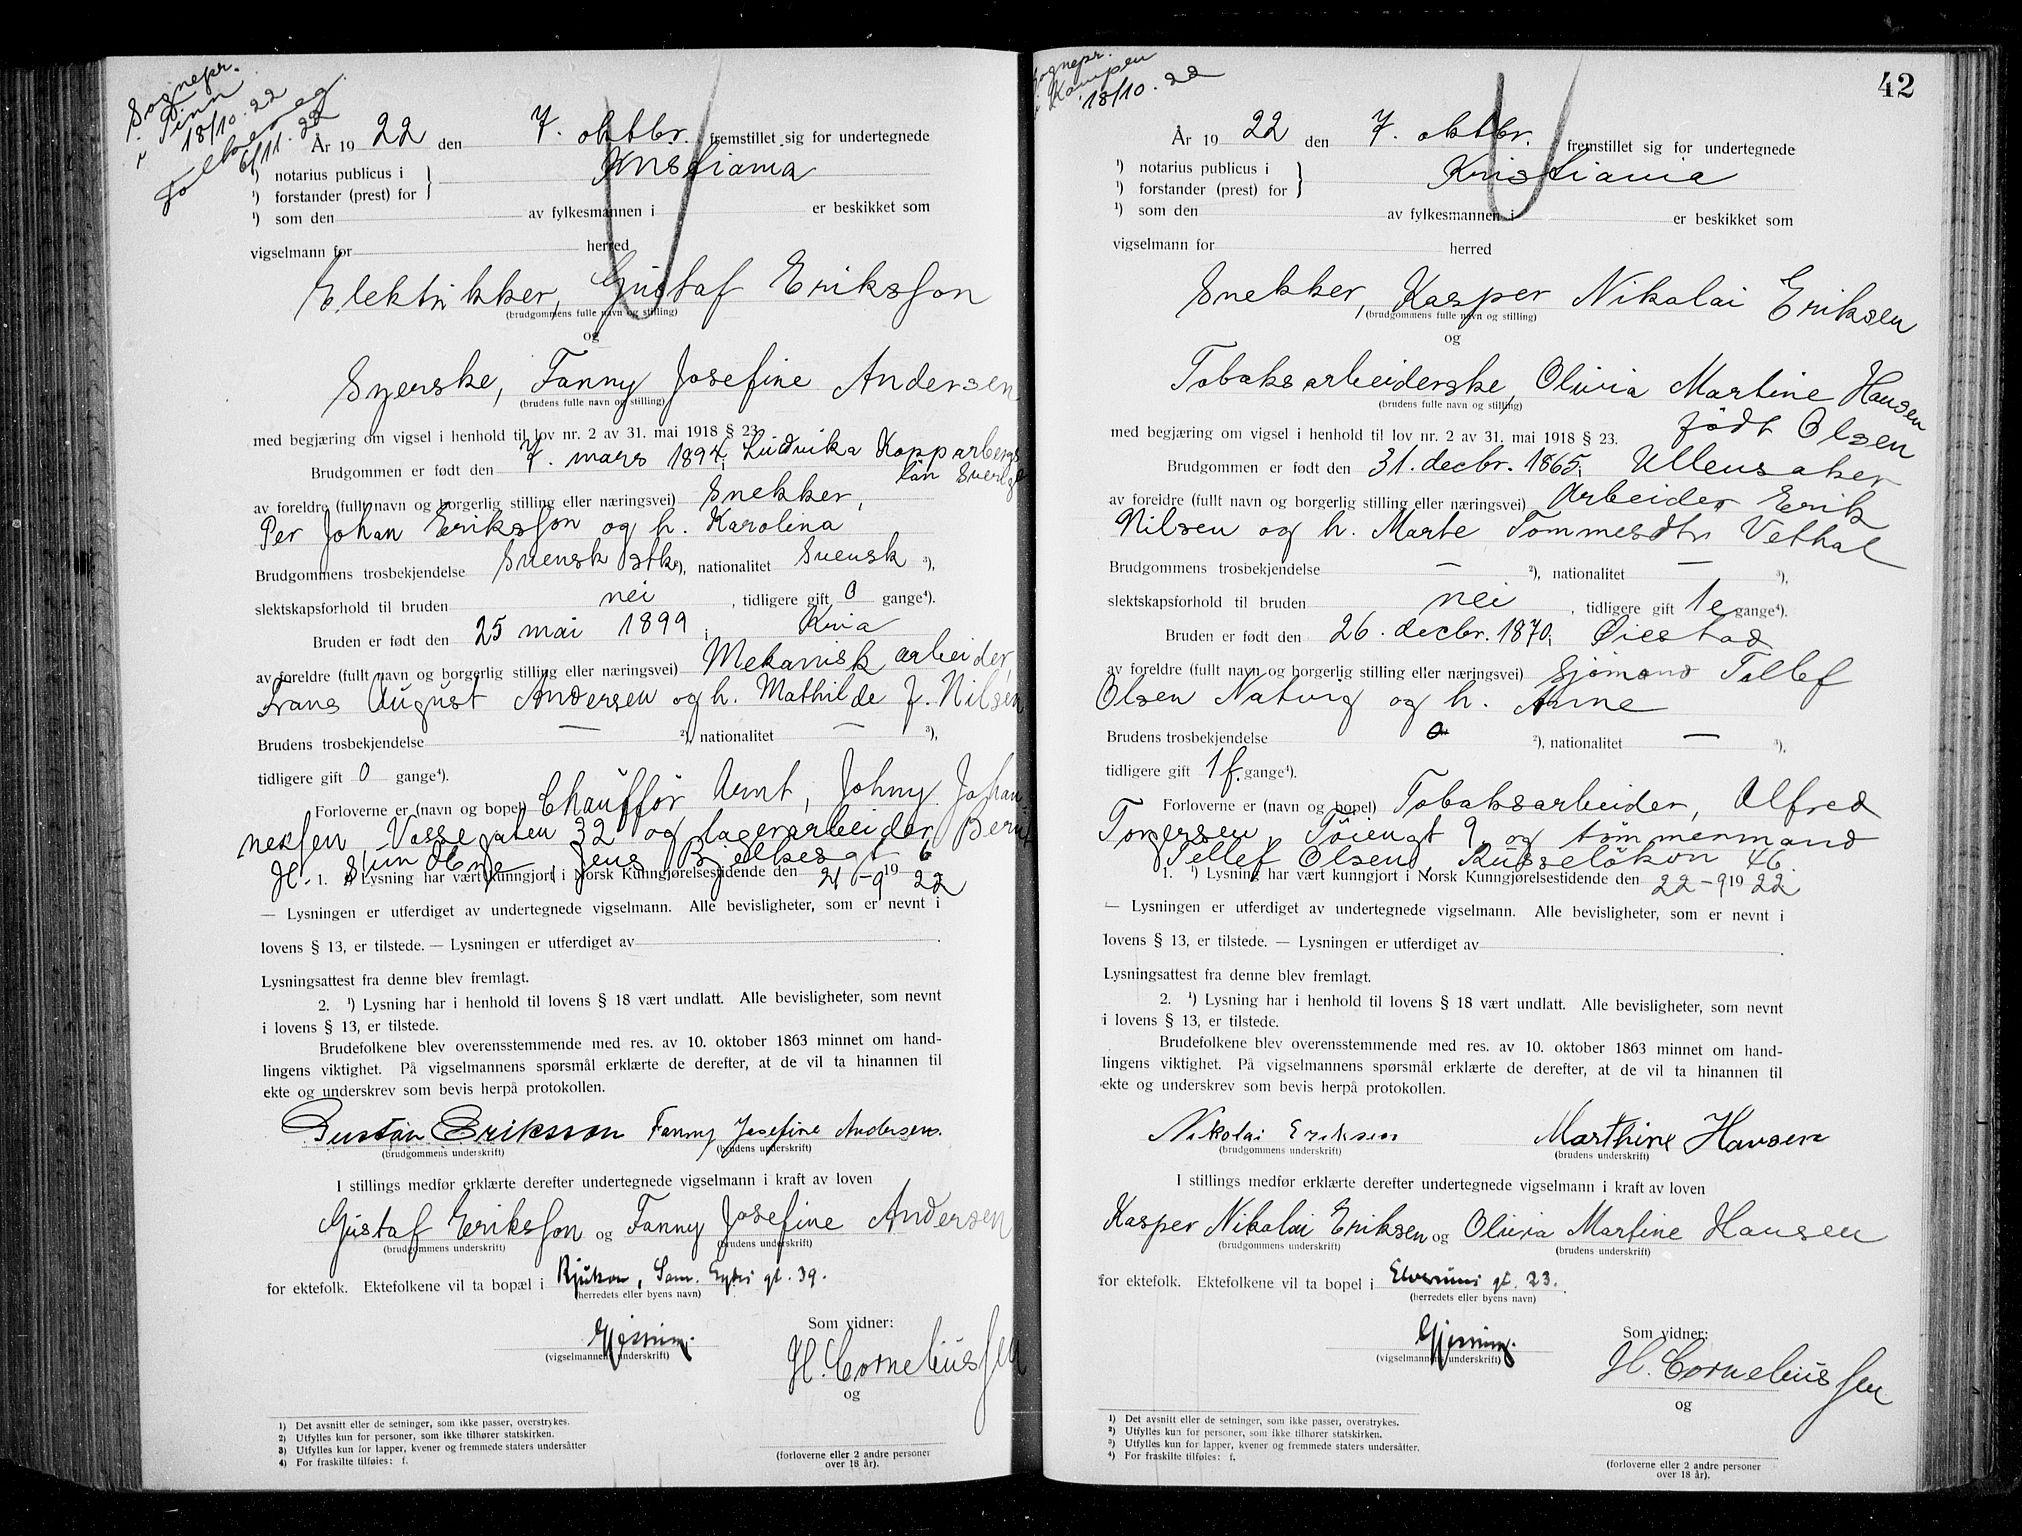 Sognepr.
i Tinn
18/10. 22
6/11. 22
År 19 22 den 7. oktbr. fremstillet sig for undertegnede
¹) notarius publicus i
¹) forstander (prest) for } Kristiania
¹) som den av fylkesmannen i er beskikket som
vigselmann for herred
Elektrikker, Gustaf Eriksson
(brudgommens fulle navn og stilling)
og
Syerske, Fanny Josefine Andersen
(brudens fulle navn og stilling)
med begjæring om vigsel i henhold til lov nr. 2 av 31. mai 1918 § 23.
Brudgommen er født den 7. mars 1894; Ludvika Kopparbergs
län Sverige
av foreldre (fullt navn og borgerlig stilling eller næringsvei) Snekker,
Per Johan Eriksson og h. Karolina
Brudgommens trosbekjendelse Svensk stk ²), nationalitet Svensk ³),
slektskapsforhold til bruden nei , tidligere gift 0 gange⁴).
Bruden er født den 25 mai 1899; Kria
av foreldre (fullt navn og borgerlig stilling eller næringsvei) Mekanisk arbeider,
Frans August Andersen og h. Mathilde f. Nilsen
Brudens trosbekjendelse — ²), nationalitet — ³),
tidligere gift 0 gange⁴).
Forloverne er (navn og bopel) Chauffør Arnt, Johny Johan-
nessen, Vossegaten 32 og lagerarbeider Bernt
H. Jens Bjelkesgt 6
1. ¹) Lysning har vært kunngjort i Norsk Kunngjørelsestidende den 21 - 9 19 22
— Lysningen er utferdiget av undertegnede vigselmann. Alle bevisligheter, som er nevnt i
lovens § 13, er tilstede. — Lysningen er utferdiget av .
Lysningsattest fra denne blev fremlagt.
2. ¹) Lysning har i henhold til lovens § 18 vært undlatt. Alle bevisligheter, som nevnt
i lovens § 13, er tilstede.
Brudefolkene blev overensstemmende med res. av 10. oktober 1863 minnet om hand-
lingens viktighet. På vigselmannens spørsmål erklærte de derefter, at de vil ta hinannen til
ekte og underskrev som bevis herpå protokollen.
Gustav Eriksson Fanny Josefine Andersen.
(brudgommens underskrift) (brudens underskrift)
I stillings medfør erklærte derefter undertegnede vigselmann i kraft av loven
Gustaf Eriksson og Fanny Josefine Andersen
(brudgommens underskrift) (brudens underskrift)
for ektefolk. Ektefolkene vil ta bopæl i Rjukan, Sam. Eydes gt. 39.
(herredets eller byens navn)
Gjessing. Som vidner:
(vigselmannens underskrift) H. Corneliussen
og
1) Det avsnitt eller de setninger, som ikke passer, overstrykes.
2) Utfylles kun for personer, som ikke tilhører statskirken.
3) Utfylles kun for lapper, kvener og fremmede staters undersåtter
4) For fraskilte tilføies: f.
(forloverne eller 2 andre personer
over 18 år).
42
Sognepr.
i Kampen
18/10. 22
År 19 22 den 7. oktbr. fremstillet sig for undertegnede
¹) notarius publicus i
¹) forstander (prest) for } Kristiania
¹) som den av fylkesmannen i er beskikket som
vigselmann for herred
Snekker, Kasper Nikolai Eriksen
(brudgommens fulle navn og stilling)
og
Tobaksarbeiderske, Olivia Martine Hansen
(brudens fulle navn og stilling)
født Olsen
med begjæring om vigsel i henhold til lov nr. 2 av 31. mai 1918 § 23.
Brudgommen er født den 31. decbr. 1865; Ullensaker
av foreldre (fullt navn og borgerlig stilling eller næringsvei) Arbeider Erik
Nilsen og h. Marte Tommesdtr Vethal
Brudgommens trosbekjendelse — ²), nationalitet — ³),
slektskapsforhold til bruden nei , tidligere gift 1 e gange⁴).
Bruden er født den 26. decbr. 1870; Øiestad
av foreldre (fullt navn og borgerlig stilling eller næringsvei) Sjømand Tellef
Olsen Natvig og h. Anne
Brudens trosbekjendelse ²), nationalitet — ³),
tidligere gift 1 f. gange⁴).
Forloverne er (navn og bopel) Tobaksarbeider, Alfred
Torgersen, Tøiengt 9, og tømmermand
Tellef Olsen, Russeløkvn 46
1. ¹) Lysning har vært kunngjort i Norsk Kunngjørelsestidende den 22 - 9 19 22
— Lysningen er utferdiget av undertegnede vigselmann. Alle bevisligheter, som er nevnt i
lovens § 13, er tilstede. — Lysningen er utferdiget av .
Lysningsattest fra denne blev fremlagt.
2. ¹) Lysning har i henhold til lovens § 18 vært undlatt. Alle bevisligheter, som nevnt
i lovens § 13, er tilstede.
Brudefolkene blev overensstemmende med res. av 10. oktober 1863 minnet om hand-
lingens viktighet. På vigselmannens spørsmål erklærte de derefter, at de vil ta hinannen til
ekte og underskrev som bevis herpå protokollen.
Nikolai Eriksen Marthine Hansen
(brudgommens underskrift) (brudens underskrift)
I stillings medfør erklærte derefter undertegnede vigselmann i kraft av loven
Kasper Nikolai Eriksen og Olivia Martine Hansen
(brudgommens underskrift) (brudens underskrift)
for ektefolk. Ektefolkene vil ta bopel i Elverums gt. 23.
(herredets eller byens navn)
Gjessing. Som vidner:
(vigselmannens underskrift) H. Corneliussen
og
1) Det avsnitt eller de setninger, som ikke passer, overstrykes.
2) Utfylles kun for personer, som ikke tilhører statskirken.
3) Utfylles kun for lapper, kvener og fremmede staters undersåtter.
4) For fraskilte tilføies: f.
(forloverne eller 2 andre personer
over 18 år).